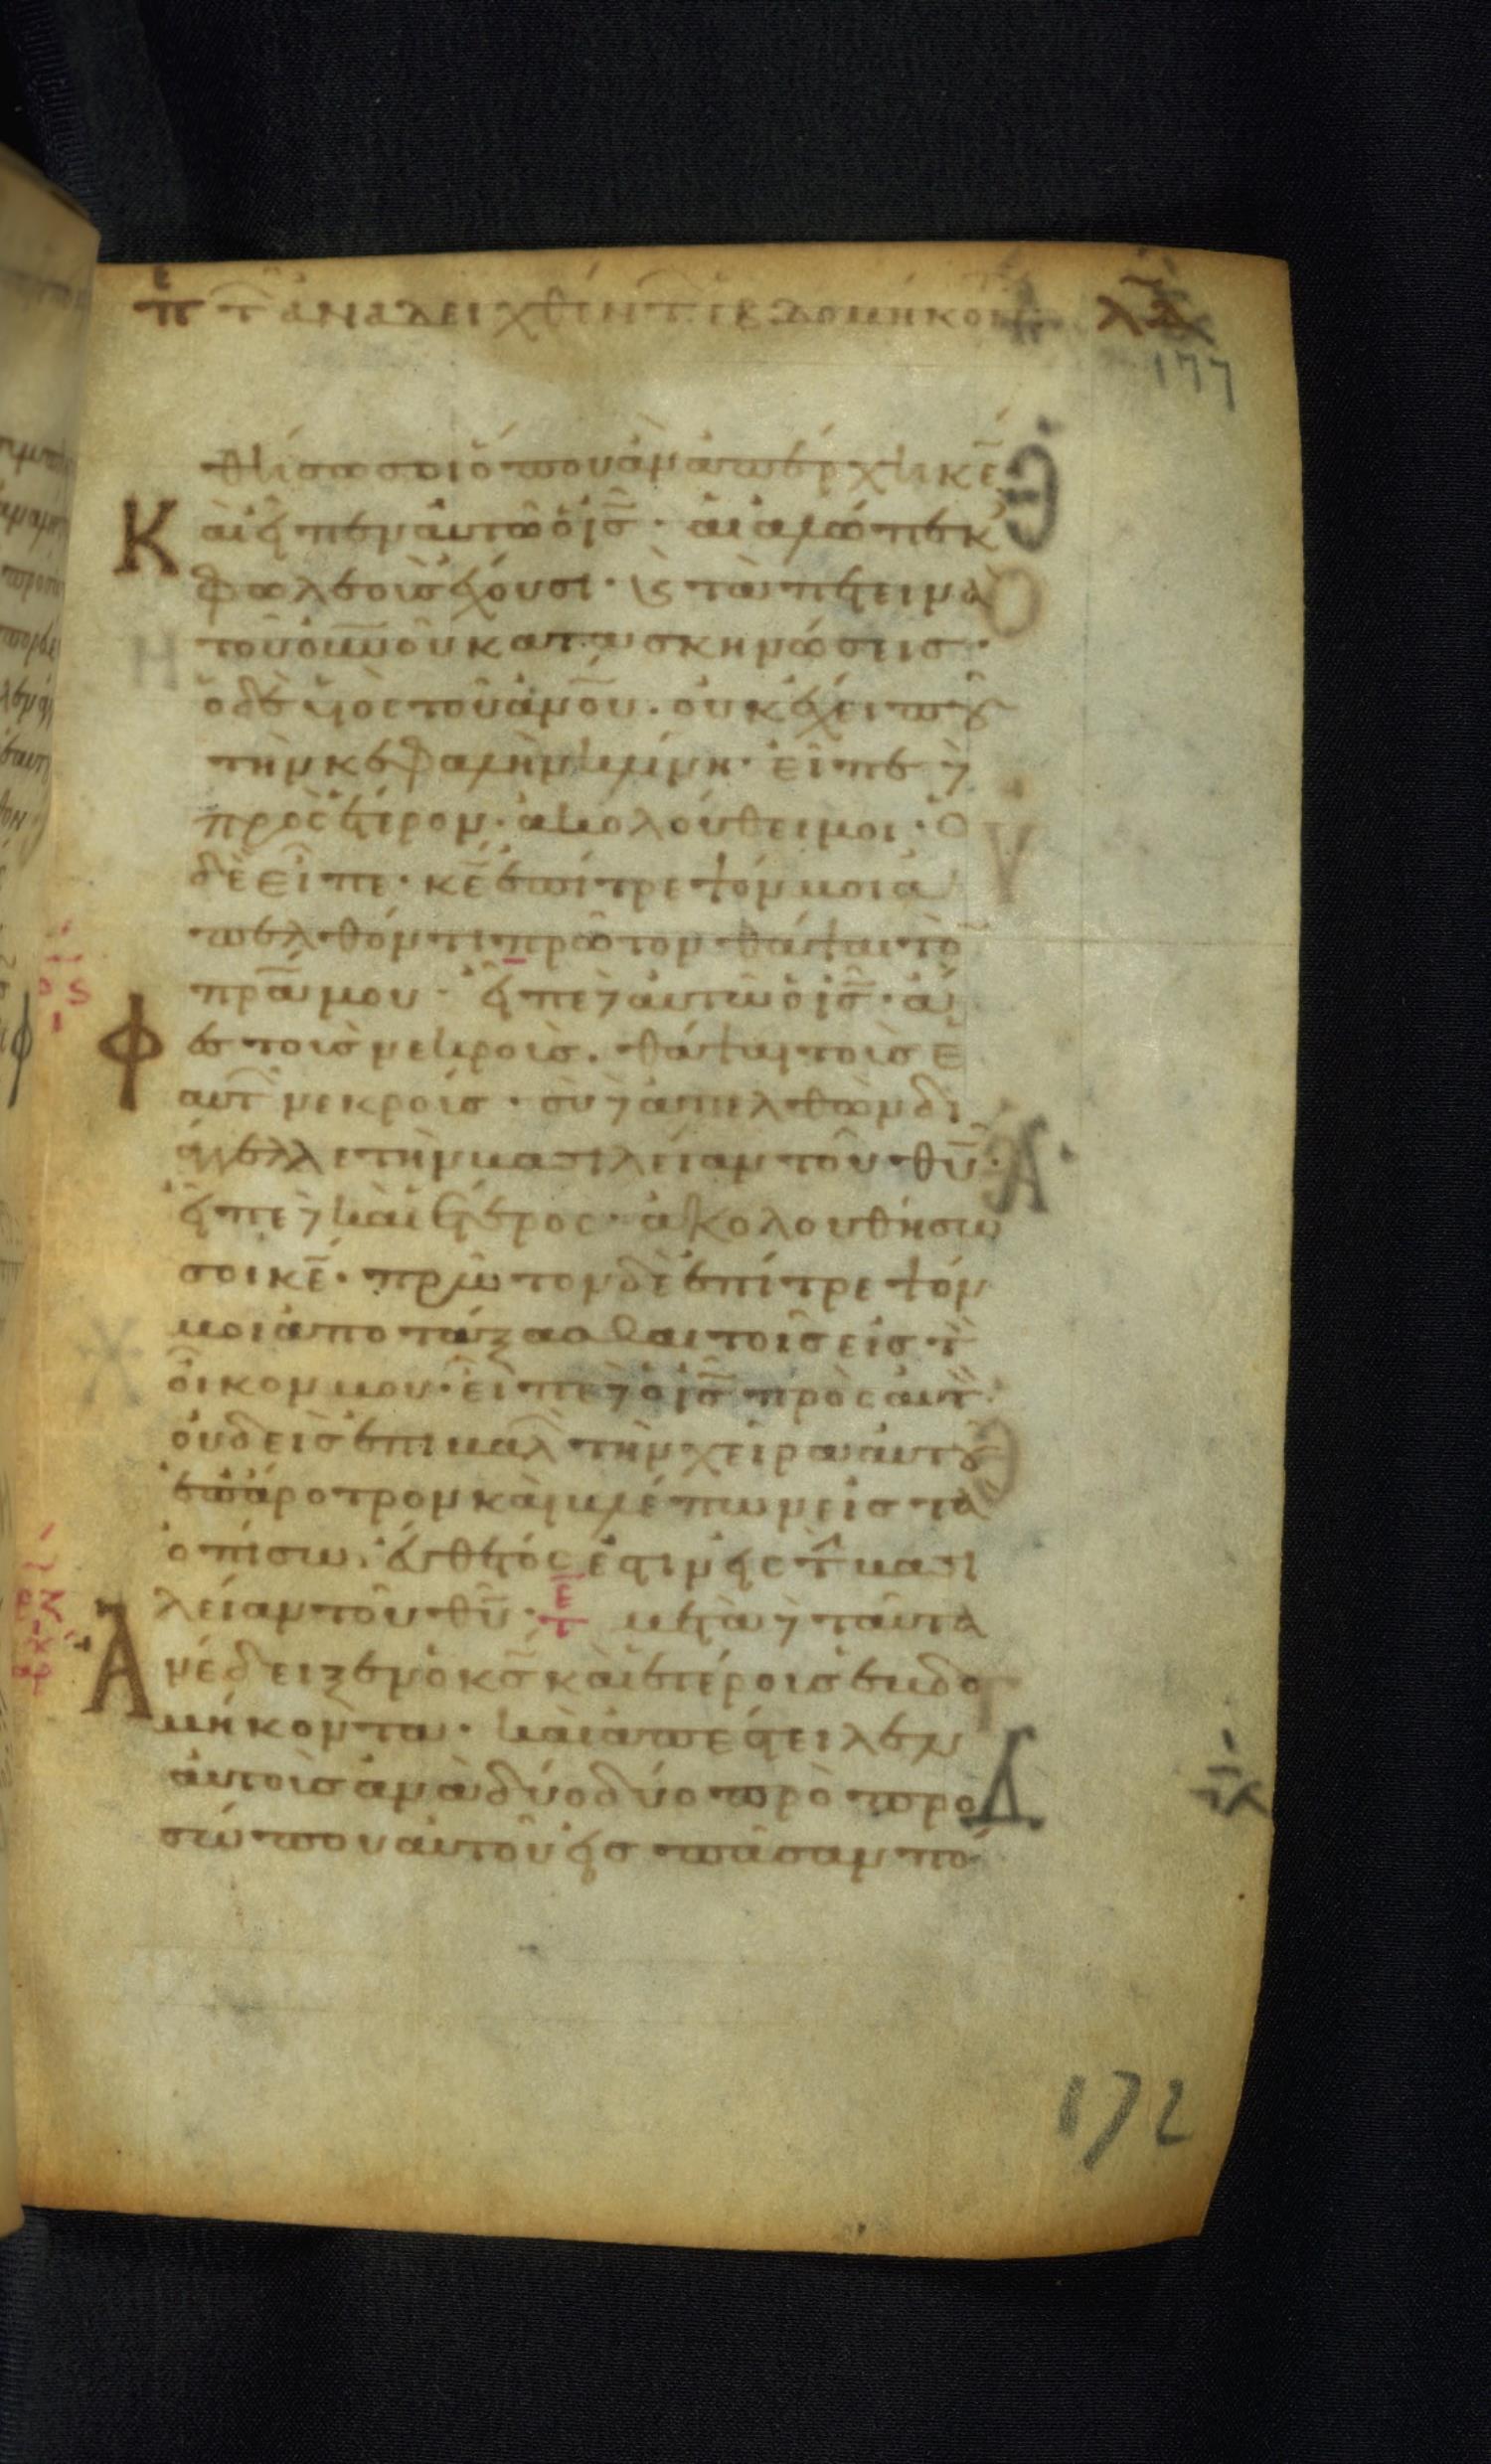 πε τ ἀναδειχθέντ ἑβδομήκοντ λδ
177
θήσω σοι ὅπου ἂν ἀπέρχη κε
Καὶ εἶπεν αὐτῶ ὁ ις· αἱ ἀλώπεκ
φωλεοὺς ἔχουσι· κς τὰ πετεινὰ
τοῦ ουνου κατασκηνώσεις·
ὁ δὲ υἱὸς τοῦ ανου· οὐκ ἔχει που
τὴν κεφαλὴν κλίνη· εἶπε δὲ
πρὸς ἕτερον· ἀκολούθει μοι· ὁ
δὲ εἶπε· κε ἐπίτρεψόν μοι ἀ
πελθόντι πρῶτον θάψαι τὸ
πρα μου· εἶπε δὲ αὐτῶ ὁ ις· ἄ
Φες τοὺς νεκροὺς· θάψαι τοὺς ἑ
αυτ νεκρούς· σὺ δὲ ἀπελθὼν δι
άγγελλε τὴν βασιλείαν τοῦ θυ·
εἶπε δὲ καὶ ἕτερος· ἀκολουθήσω
σοι κε· πρῶτον δὲ ἐπίτρεψόν
μοι ἀποτάξασθαι τοῖς εἰς τ
οἶκον μου· εἶπε δὲ ὁ ις πρὸς αὐτ·
οὐδεὶς ἐπιβαλ τὴν χεῖρα αὐτου
ἐπ ἄροτρον καὶ βλέπων εἰς τὰ
ὀπίσω· εὔθετός ἐστιν εἰς τ βασι
λείαν τοῦ θυ· τε μετὰ δὲ ταῦτα
Ἀνέδειξεν ὁ κς καὶ ἑτέρους ἑβδο
μήκοντα· καὶ ἀπέστειλεν
αὐτοὺς ἀνὰ δύο δύο πρὸ προ
σώπου αὐτοῦ εἰς πᾶσαν πό
172